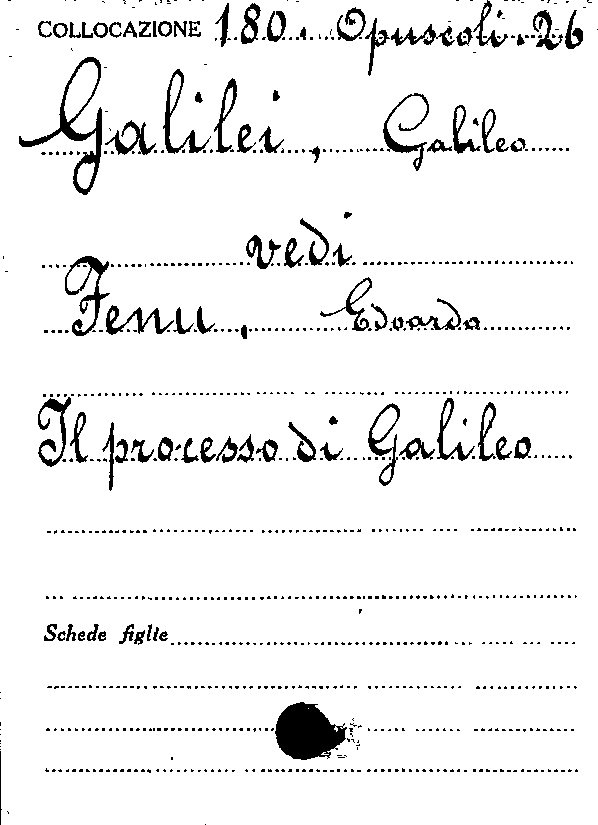 COLLOCAZIONE 180. Opuscoli. 26
Galilei, Galileo
vedi
Fenu, Edoardo
Il processo di Galileo
Schede figlie